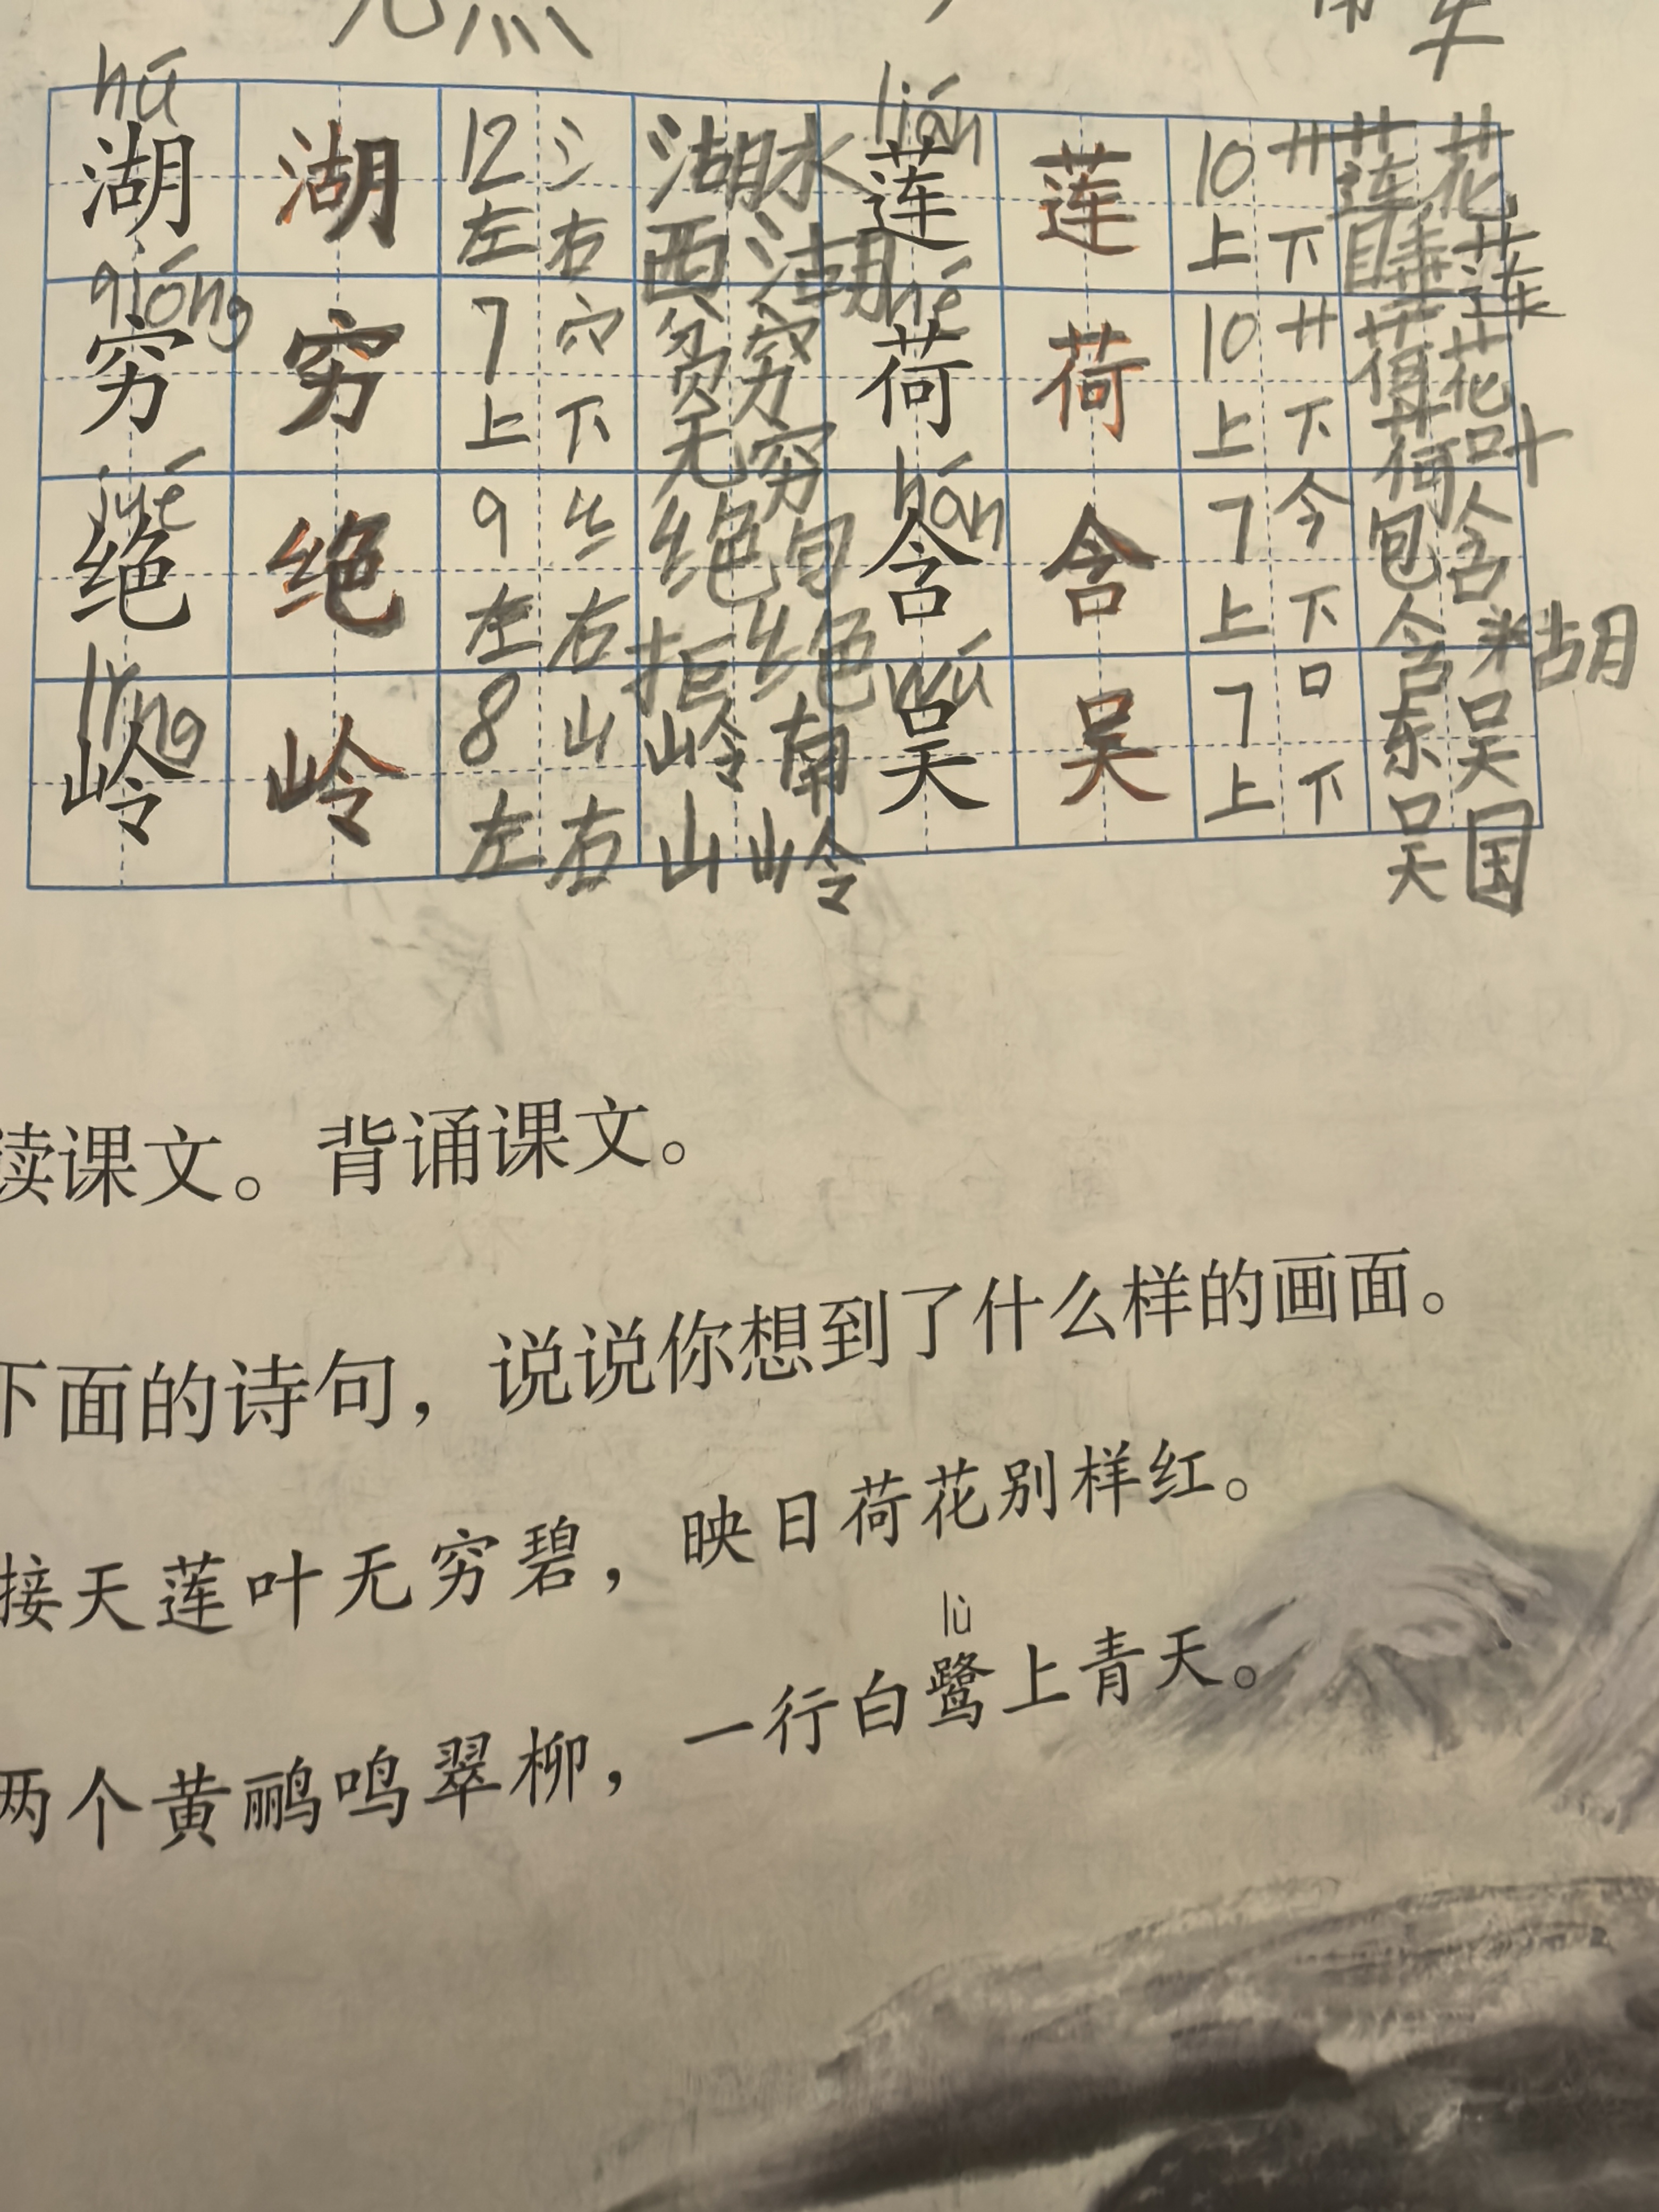 hú lián
湖 湖 12 氵 湖水 莲 莲 10 艹 莲花
左 右 西湖 上 下 睡莲
qióng hé
穷 穷 7 穴 贫穷 荷 荷 10 艹 荷花
上 下 无穷 上 下 荷叶
jué hán
绝 绝 9 纟 绝句 含 含 7 今 包含
左 右 拒绝 上 下 含糊
lǐng wú
岭 岭 8 山 岭南 吴 吴 7 口 东吴
左 右 山岭 上 下 吴国
读课文。背诵课文。
下面的诗句，说说你想到了什么样的画面。
接天莲叶无穷碧，映日荷花别样红。
lù
两个黄鹂鸣翠柳，一行白鹭上青天。